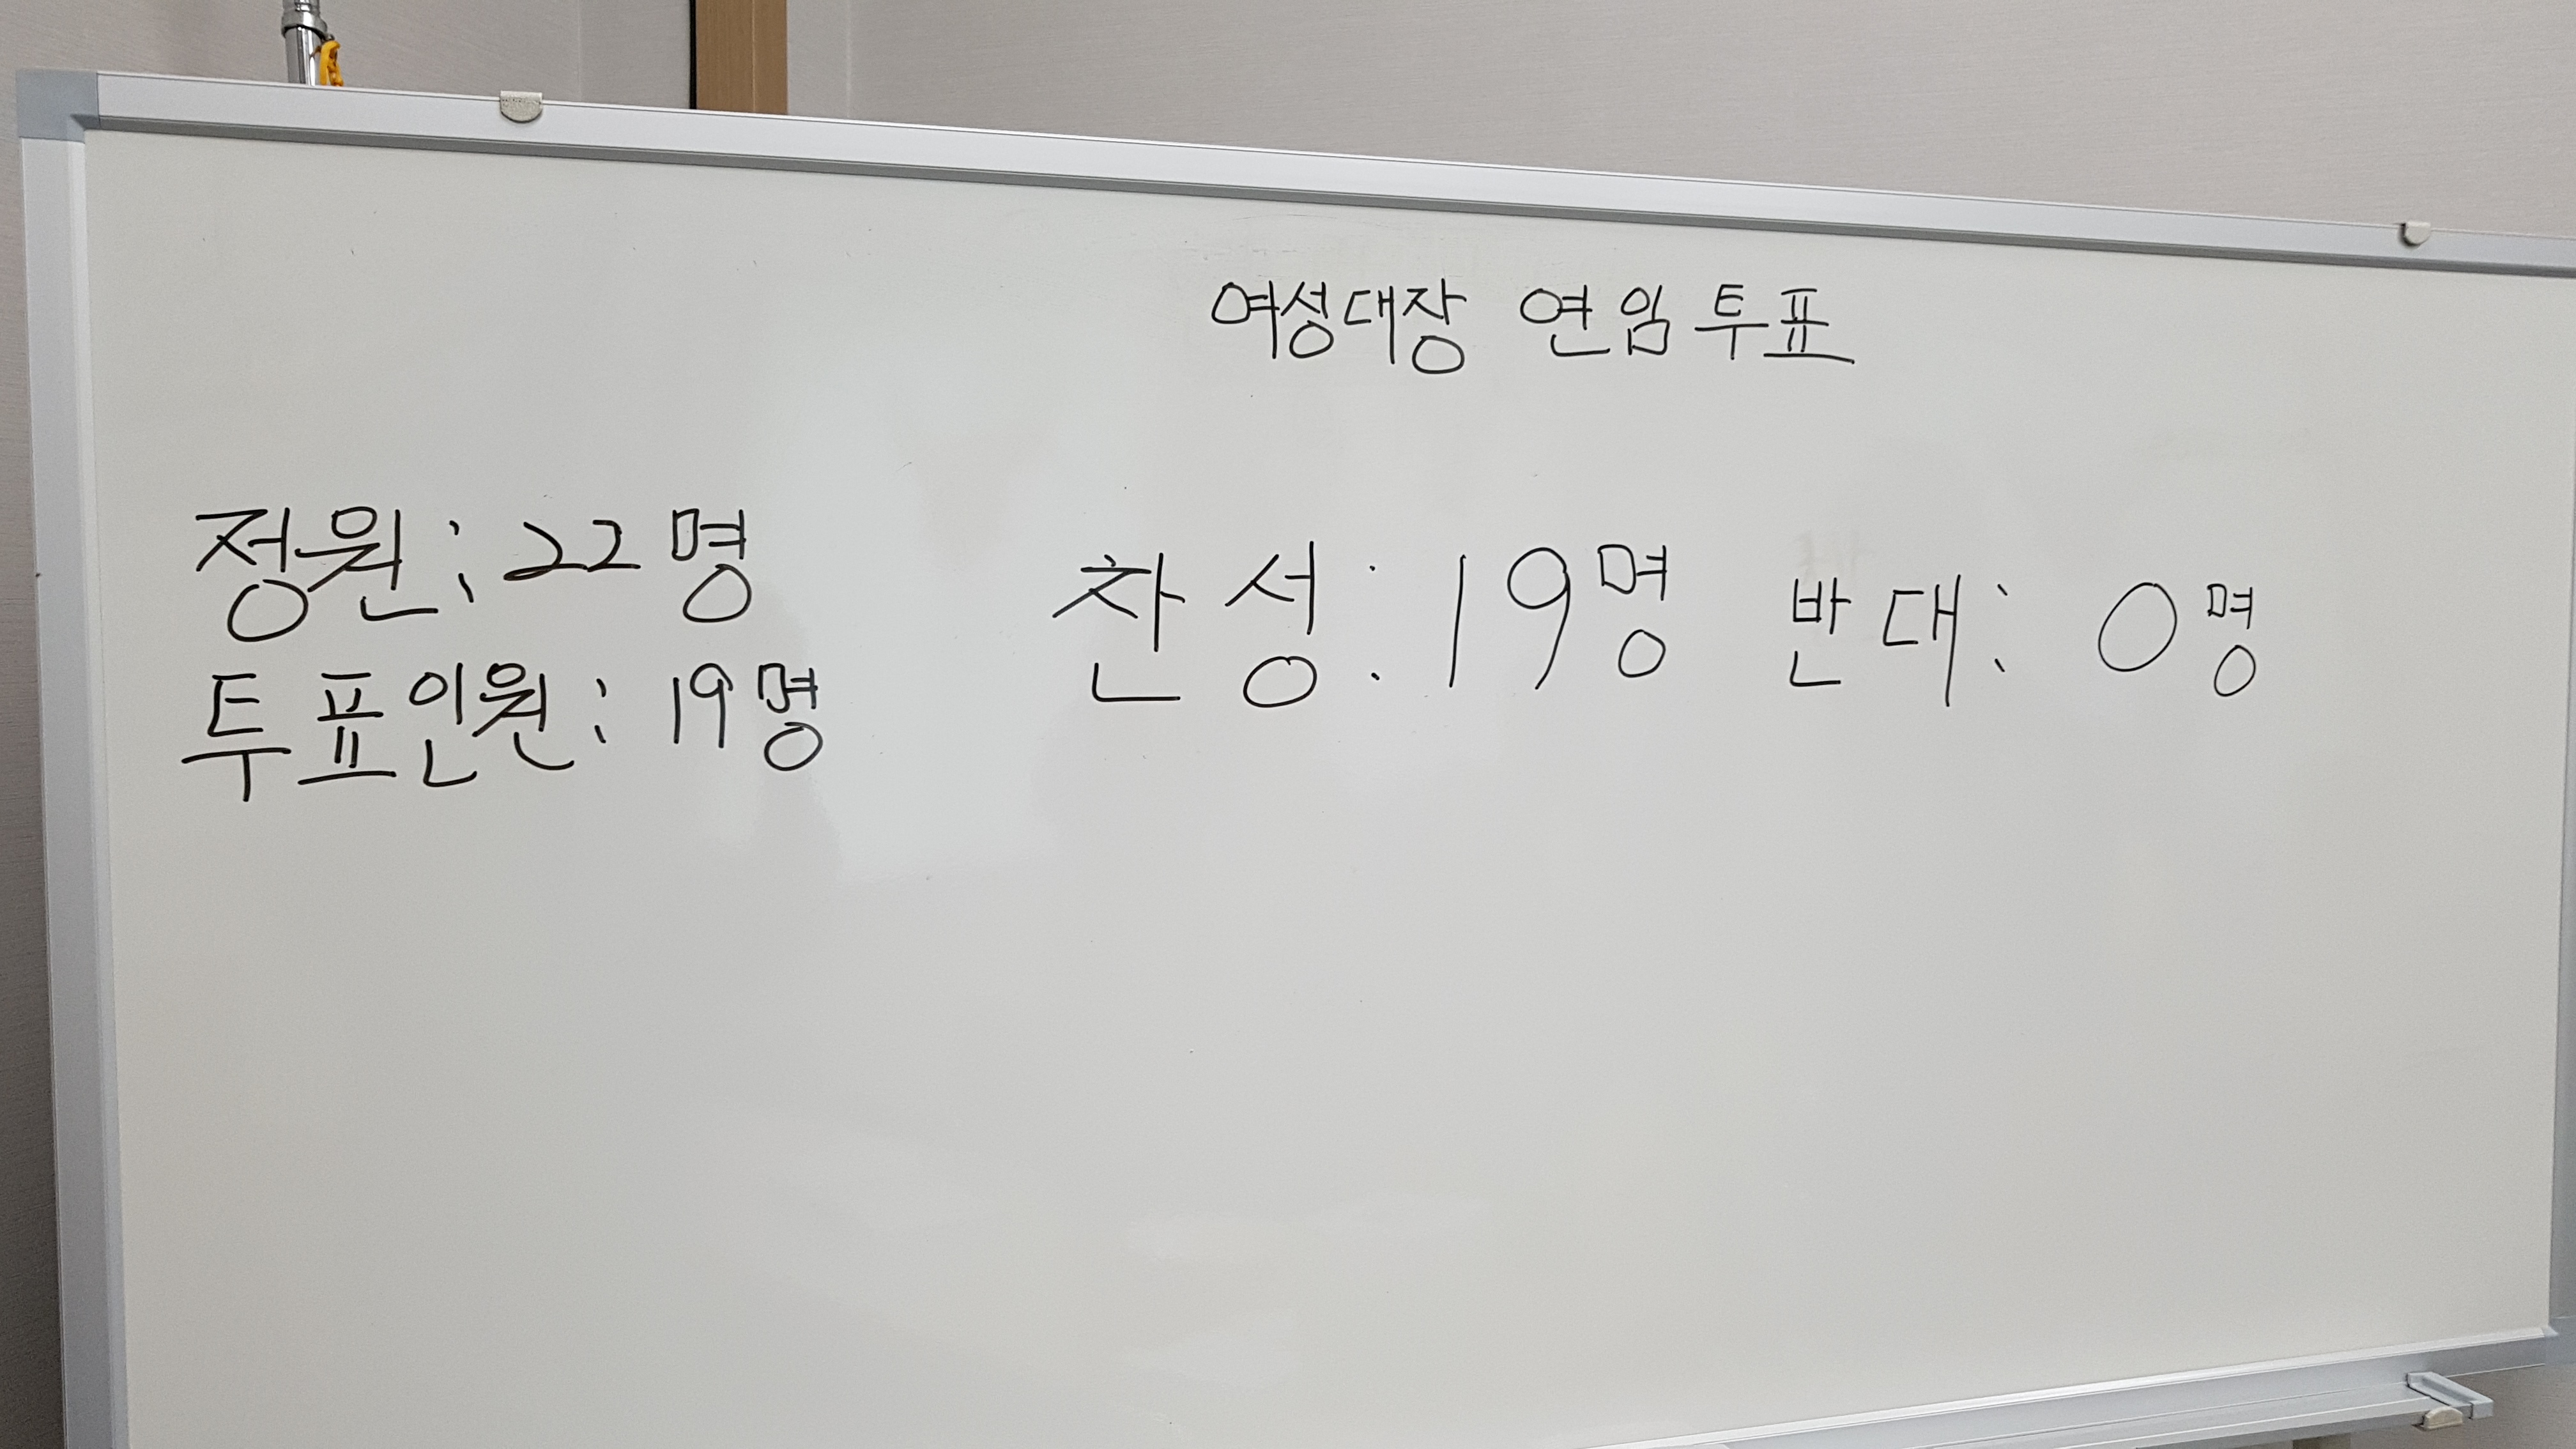 여성대장 연임투표
정원: 22명
투표인원: 19명
찬성: 19명 반대: 0명